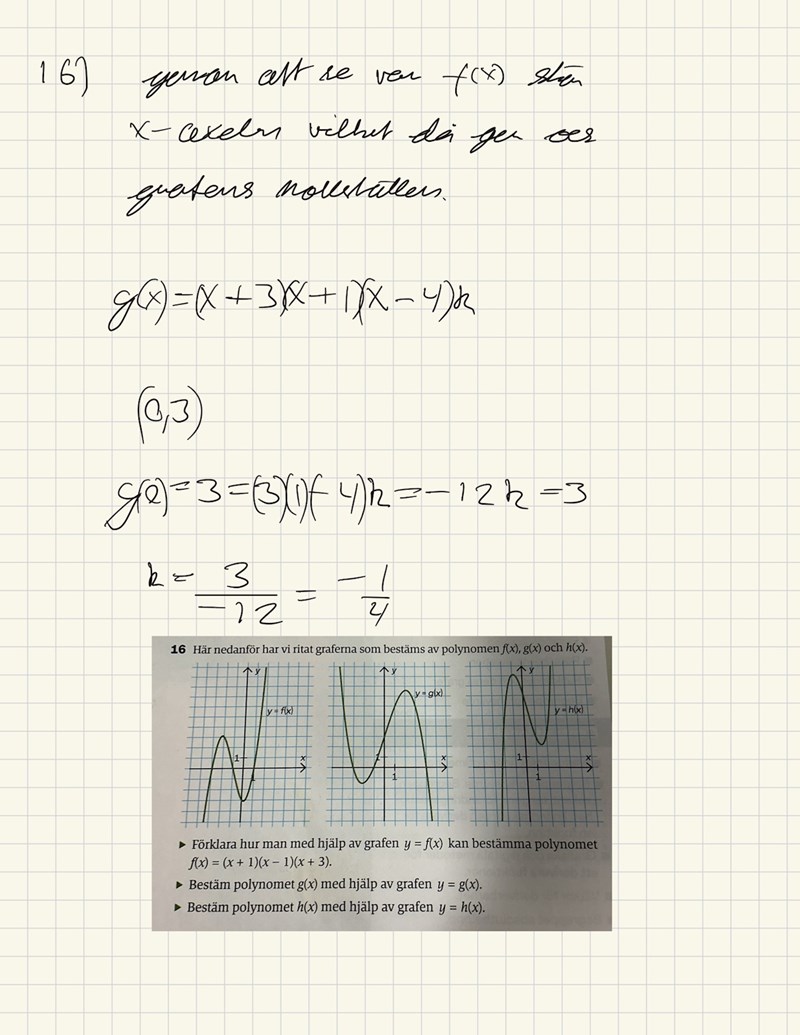 16) genom att se var f(x) skär
x-axeln vilket då ger oss
grafens nollställen.
g(x)=(x+3)(x+1)(x-4)k
(0,3)
g(0)=3=(3)(1)(-4)k=-12k=3
k= 3/-12 = -1/4
16 Här nedanför har vi ritat graferna som bestäms av polynomen f(x), g(x) och h(x).
y y y
y = f(x) y = g(x) y = h(x)
1 x 1 x 1 x
1 1 1
▶ Förklara hur man med hjälp av grafen y = f(x) kan bestämma polynomet
f(x) = (x + 1)(x − 1)(x + 3).
▶ Bestäm polynomet g(x) med hjälp av grafen y = g(x).
▶ Bestäm polynomet h(x) med hjälp av grafen y = h(x).